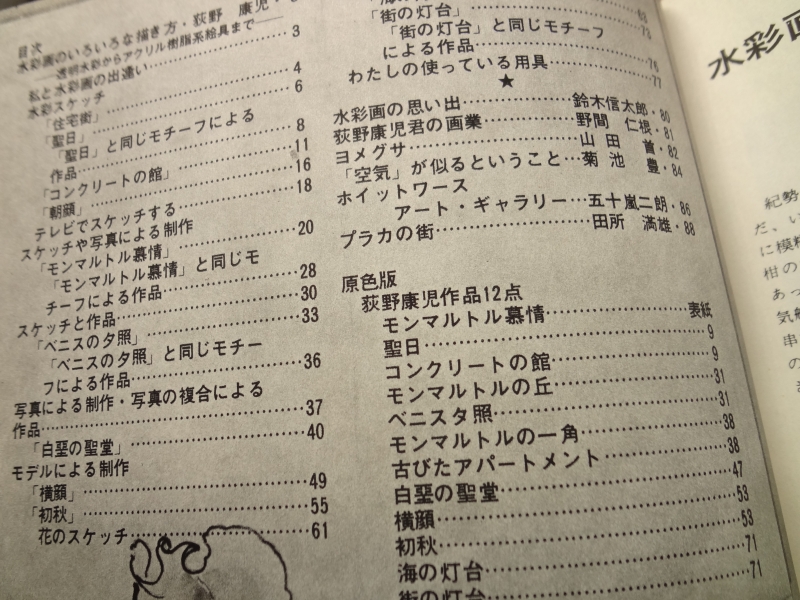 目次
水彩画のいろいろな描き方・荻野 康児・
―透明水彩からアクリル樹脂系絵具まで―
私と水彩画の出逢い……3
水彩スケッチ
「住宅街」……4
「聖日」……6
「聖日」と同じモチーフによる
作品……8
「コンクリートの館」……11
「朝顔」……16
テレビでスケッチする……18
スケッチや写真による制作
「モンマルトル慕情」……20
「モンマルトル慕情」と同じモ
チーフによる作品……28
スケッチと作品……30
「ベニスの夕照」……33
「ベニスの夕照」と同じモチー
フによる作品……36
写真による制作・写真の複合による
作品……37
「白堊の聖堂」……40
モデルによる制作
「横顔」……49
「初秋」……55
花のスケッチ……61
「街の灯台」……73
「街の灯台」と同じモチーフ
による作品……76
わたしの使っている用具……77
★
水彩画の思い出……鈴木信太郎・80
荻野康児君の画業……野間 仁根・81
ヨメグサ……山田 首・82
「空気」が似るということ…菊池 豊・84
ホイットワース
アート・ギャラリー…五十嵐二朗・86
プラカの街……田所 満雄・88
原色版
荻野康児作品12点
モンマルトル慕情……表紙
聖日……9
コンクリートの館……9
モンマルトルの丘……31
ベニスタ照……31
モンマルトルの一角……38
古びたアパートメント……38
白堊の聖堂……47
横顔……53
初秋……53
海の灯台……71
街の灯台……71
水彩画
紀勢
だ、い
に模糊
柑の
あっ
気
串
の